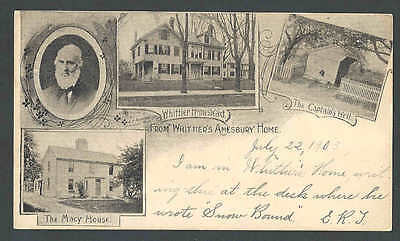 Whittier Homestead.
The Captain's Well.
FROM WHITTIER'S AMESBURY HOME.
The Macy House.
July 22, 1903
I am in Whittier's Home writ
ing this at the desk where he
wrote "Snow Bound" E.K.T.